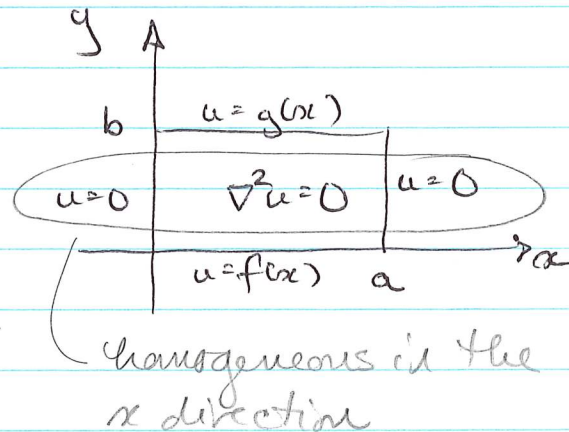 y
b
u = g(x)
u=0 ∇²u=0 u=0
x
u=f(x) a
homogeneous in the
x direction